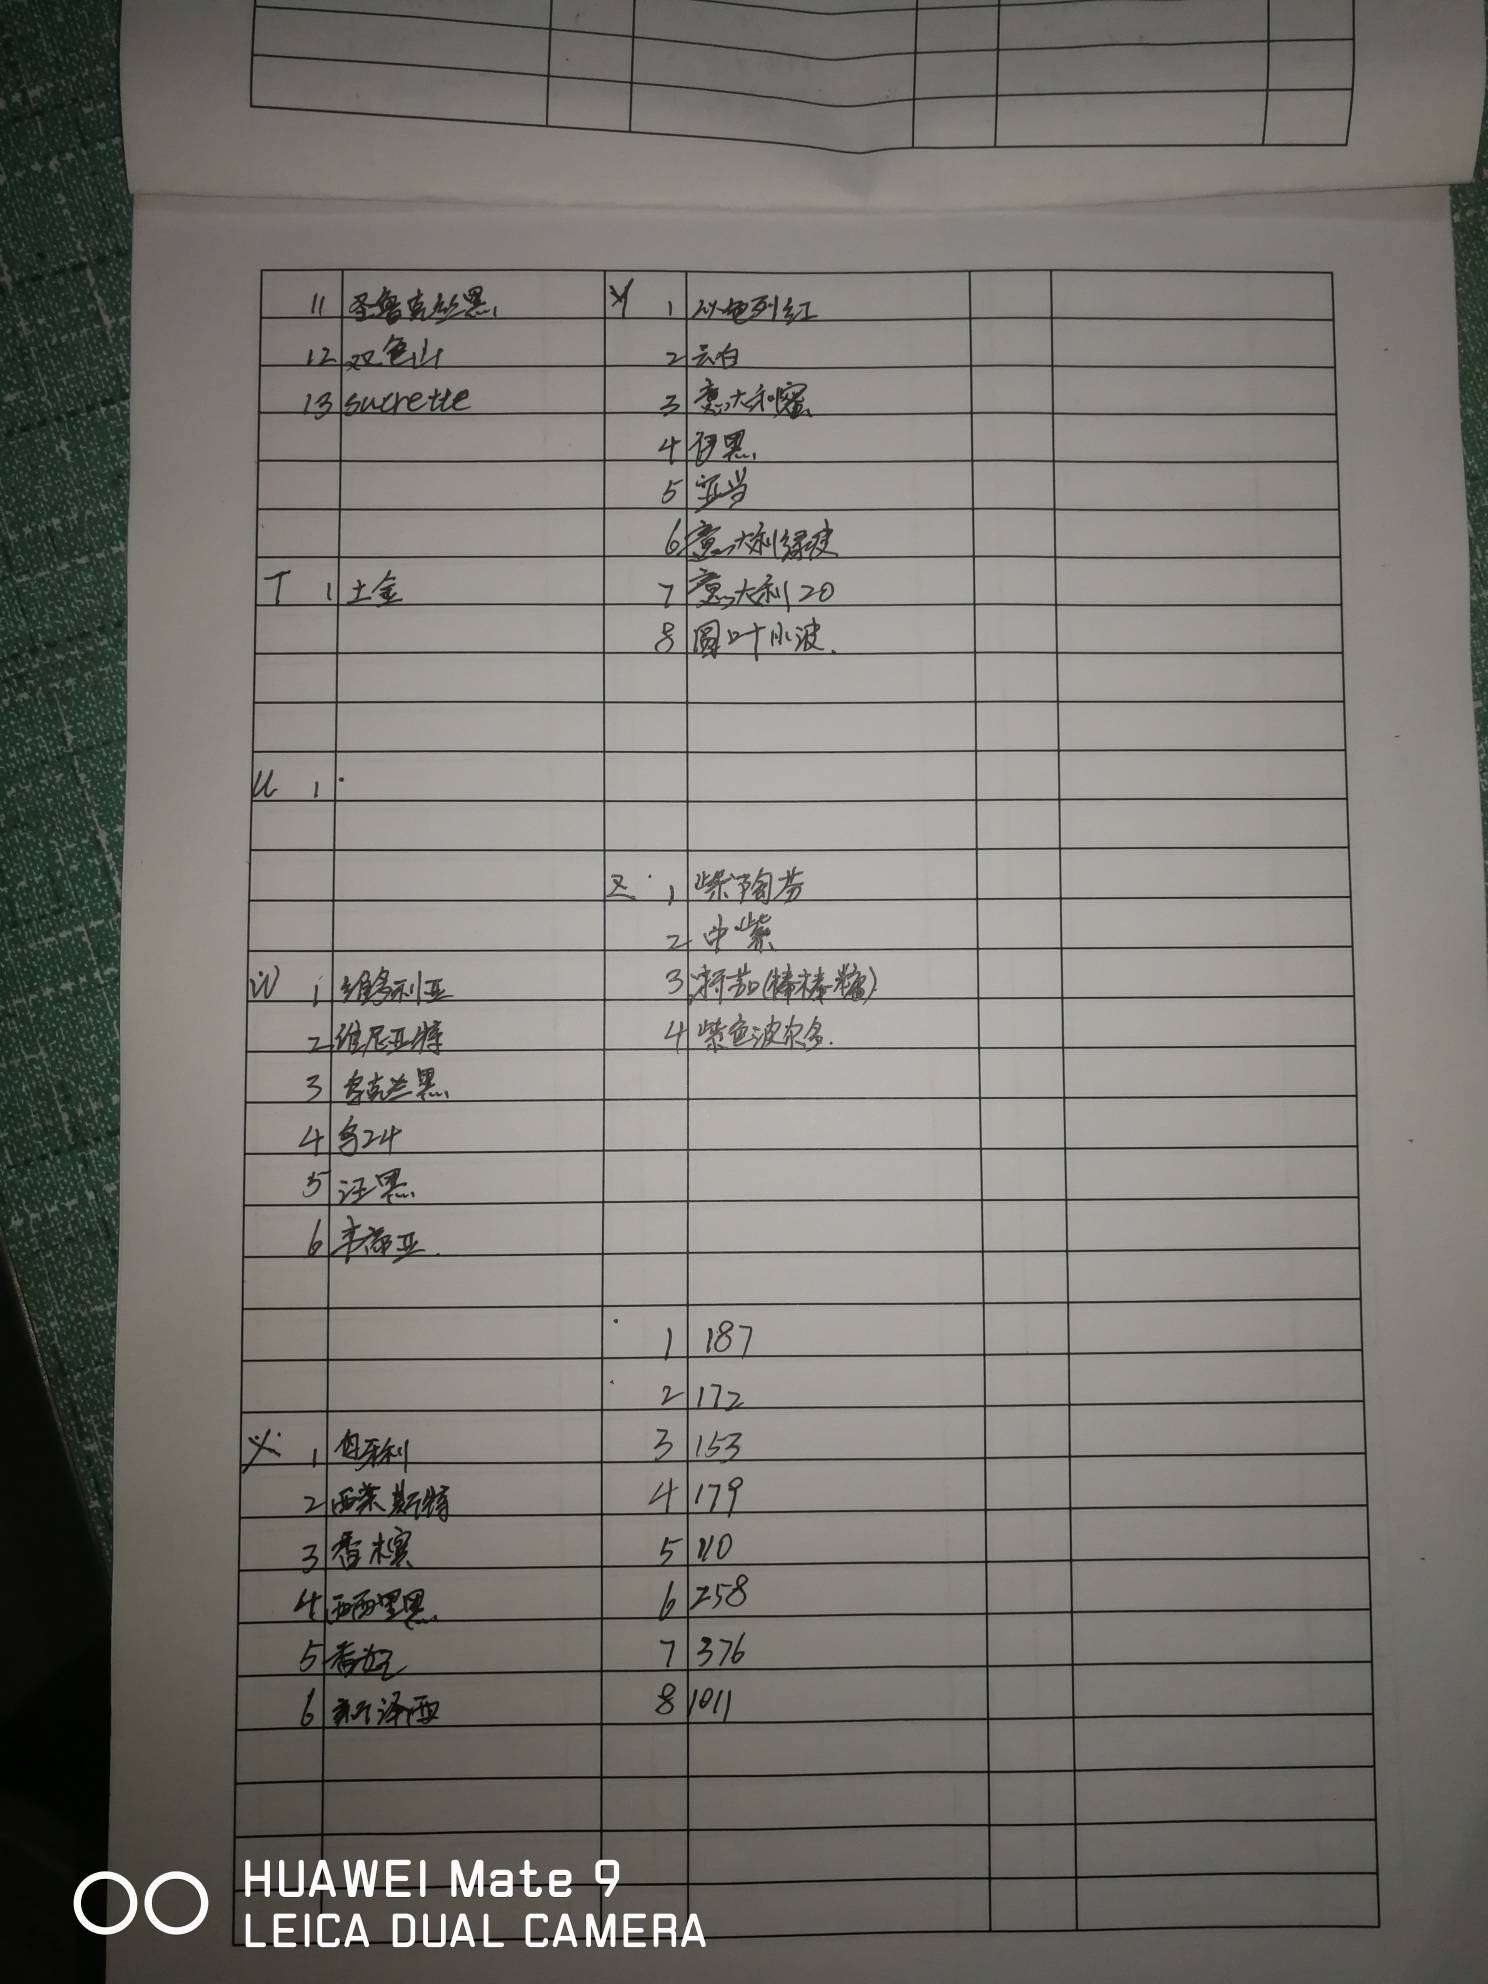 11 圣鲁克丝黑
12 双色山
13 sucrette
T 1 土金
U 1
W 1 维多利亚
2 维尼亚特
3 乌克兰黑
4 乌24
5 汪黑
6 韦蒂亚
X 1 匈牙利
2 西莱斯特
3 香槟
4 西西里黑
5 香妃
6 新泽西
Y 1 以色列红
2 云白
3 意大利蜜
4 伊黑
5 亚当
6 意大利绿波
7 意大利20
8 圆叶小波
Z 1 紫陶芬
2 中紫
3 (棒棒糖)
4 紫色波尔多
1 187
2 172
3 153
4 179
5 110
6 258
7 376
8 1011
HUAWEI Mate 9
LEICA DUAL CAMERA